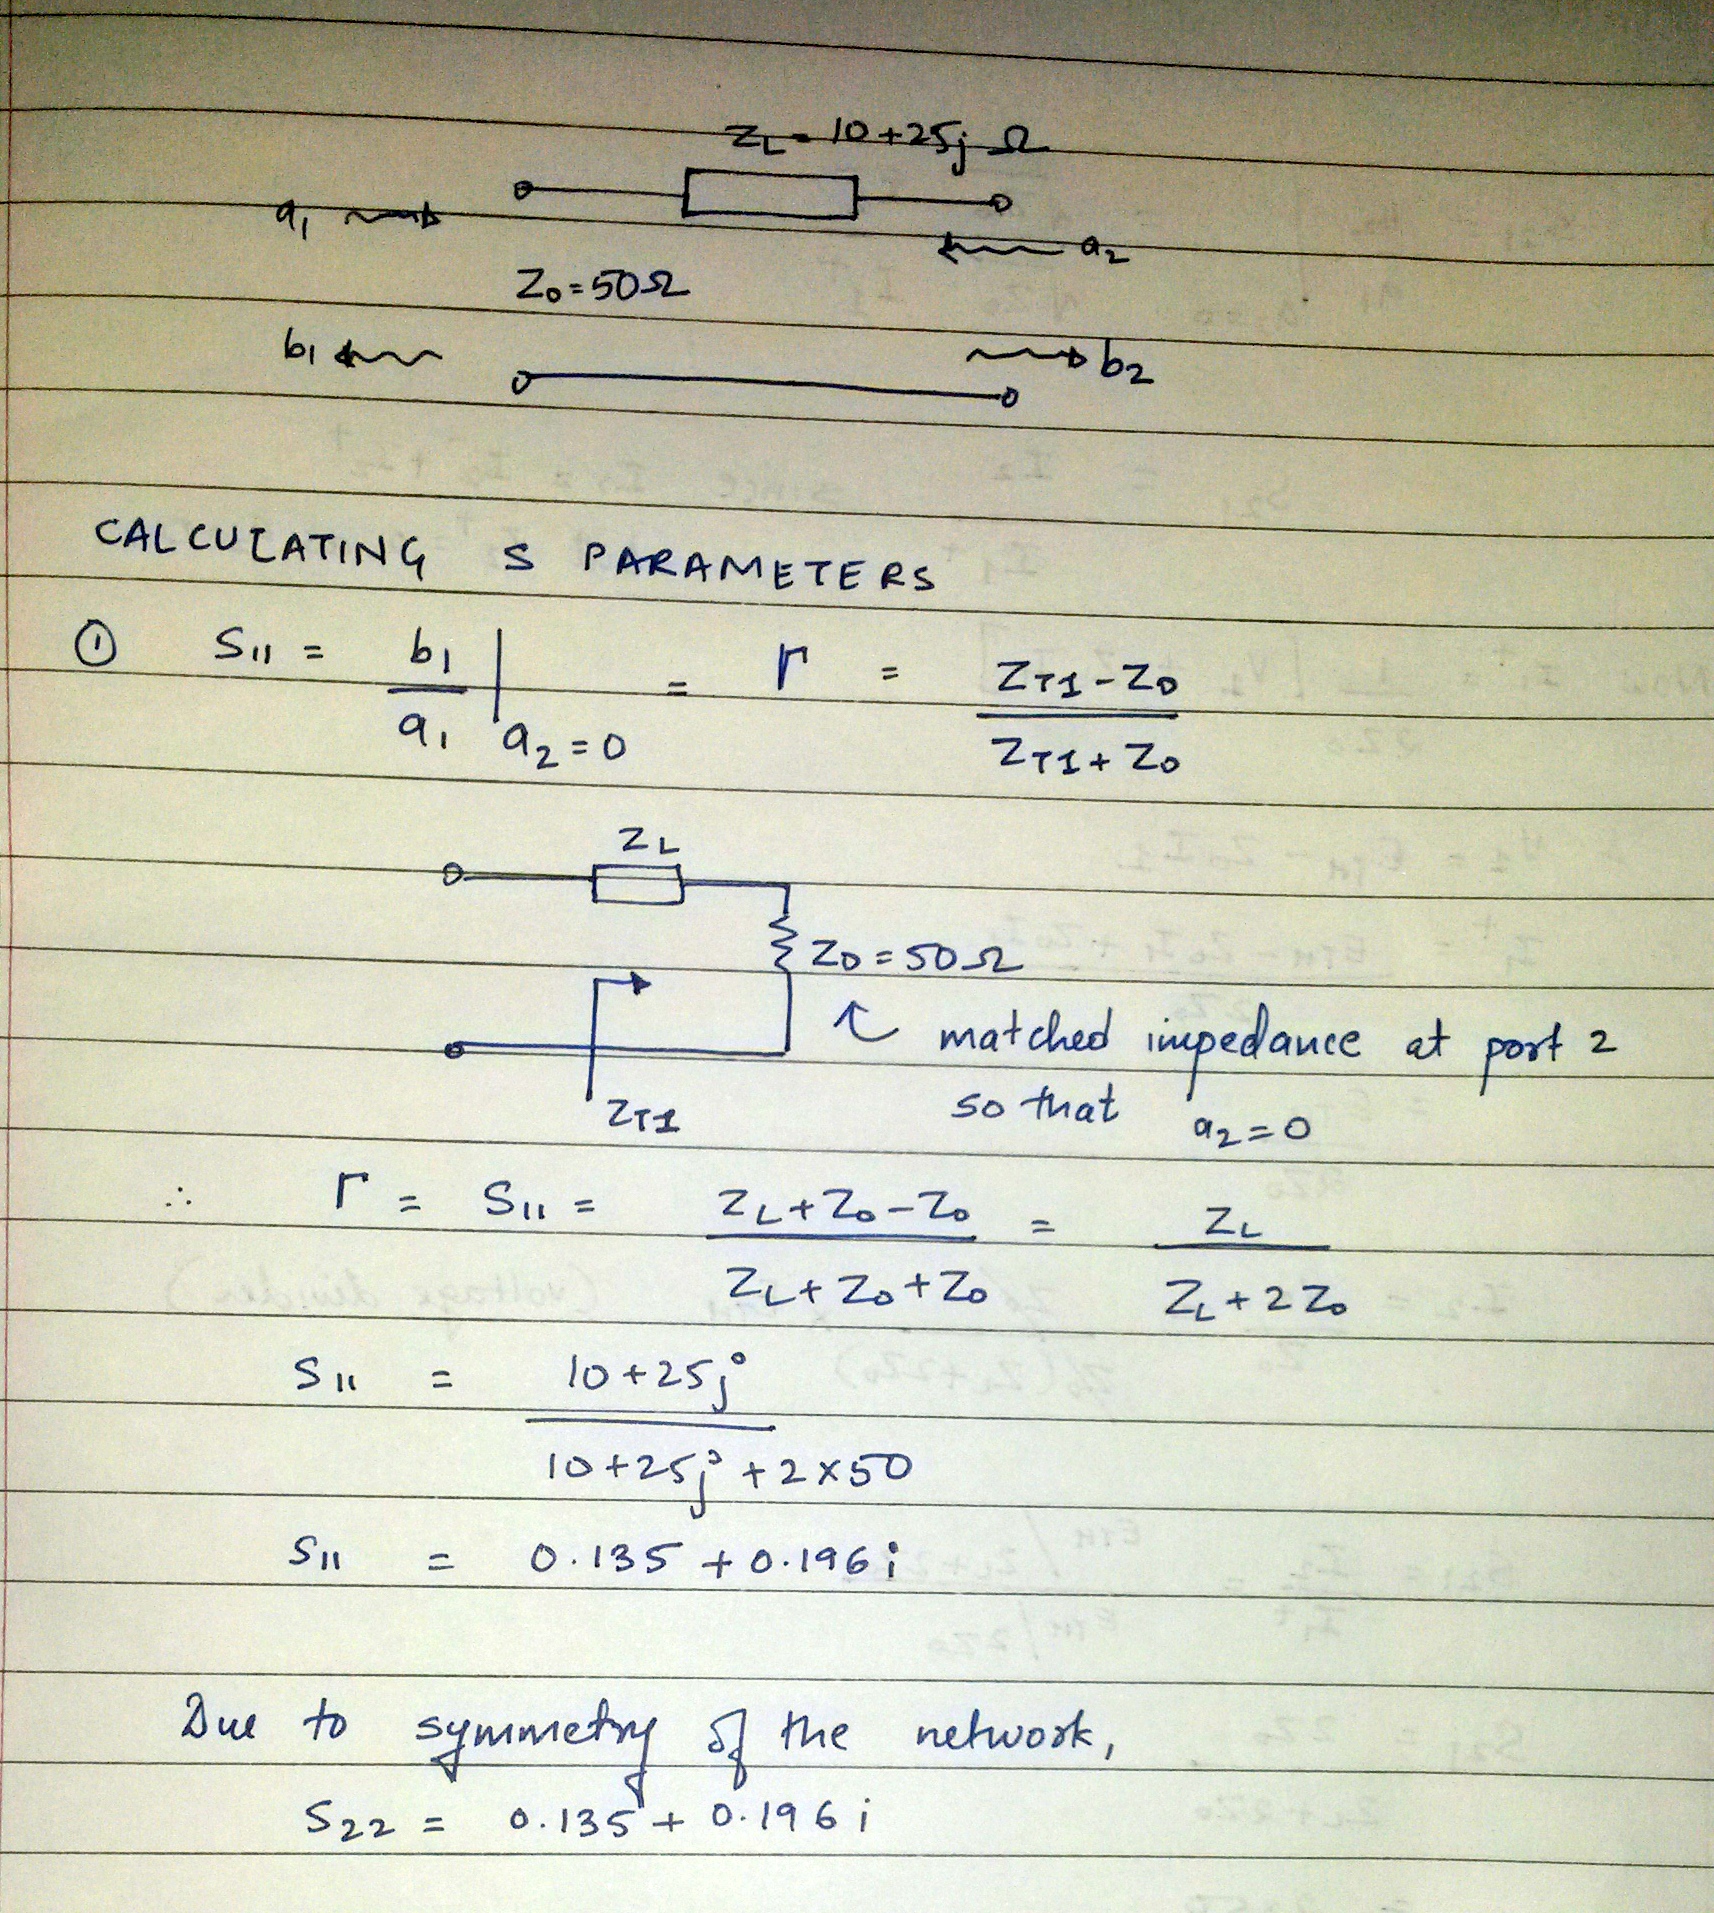 ZL = 10+25j Ω
a1
a2
Z0=50Ω
b1
b2
CALCULATING S PARAMETERS
① S11 = b1/a1 | a2=0 = Γ = (ZT1-Z0)/(ZT1+Z0)
ZL
Z0=50Ω
matched impedance at port 2
ZT1
so that a2=0
∴ Γ = S11 = (ZL+Z0-Z0)/(ZL+Z0+Z0) = ZL/(ZL+2Z0)
S11 = (10+25j)/(10+25j+2×50)
S11 = 0.135 +0.196i
Due to symmetry of the network,
S22 = 0.135 + 0.196i